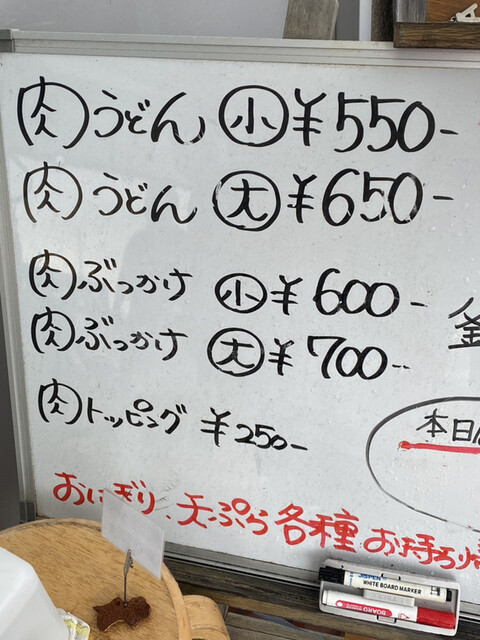 肉うどん 小 ¥550-
肉うどん 大 ¥650-
肉ぶっかけ 小 ¥600-
肉ぶっかけ 大 ¥700-
肉トッピング ¥250-
釜
本日
おにぎり、天ぷら各種 お持ち帰
WHITE BOARD MARKER
BOARD